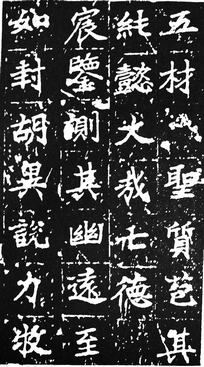 五材聖質苞其
純懿大哉仁德
宸鑒測其幽遠至
如封胡異說力牧